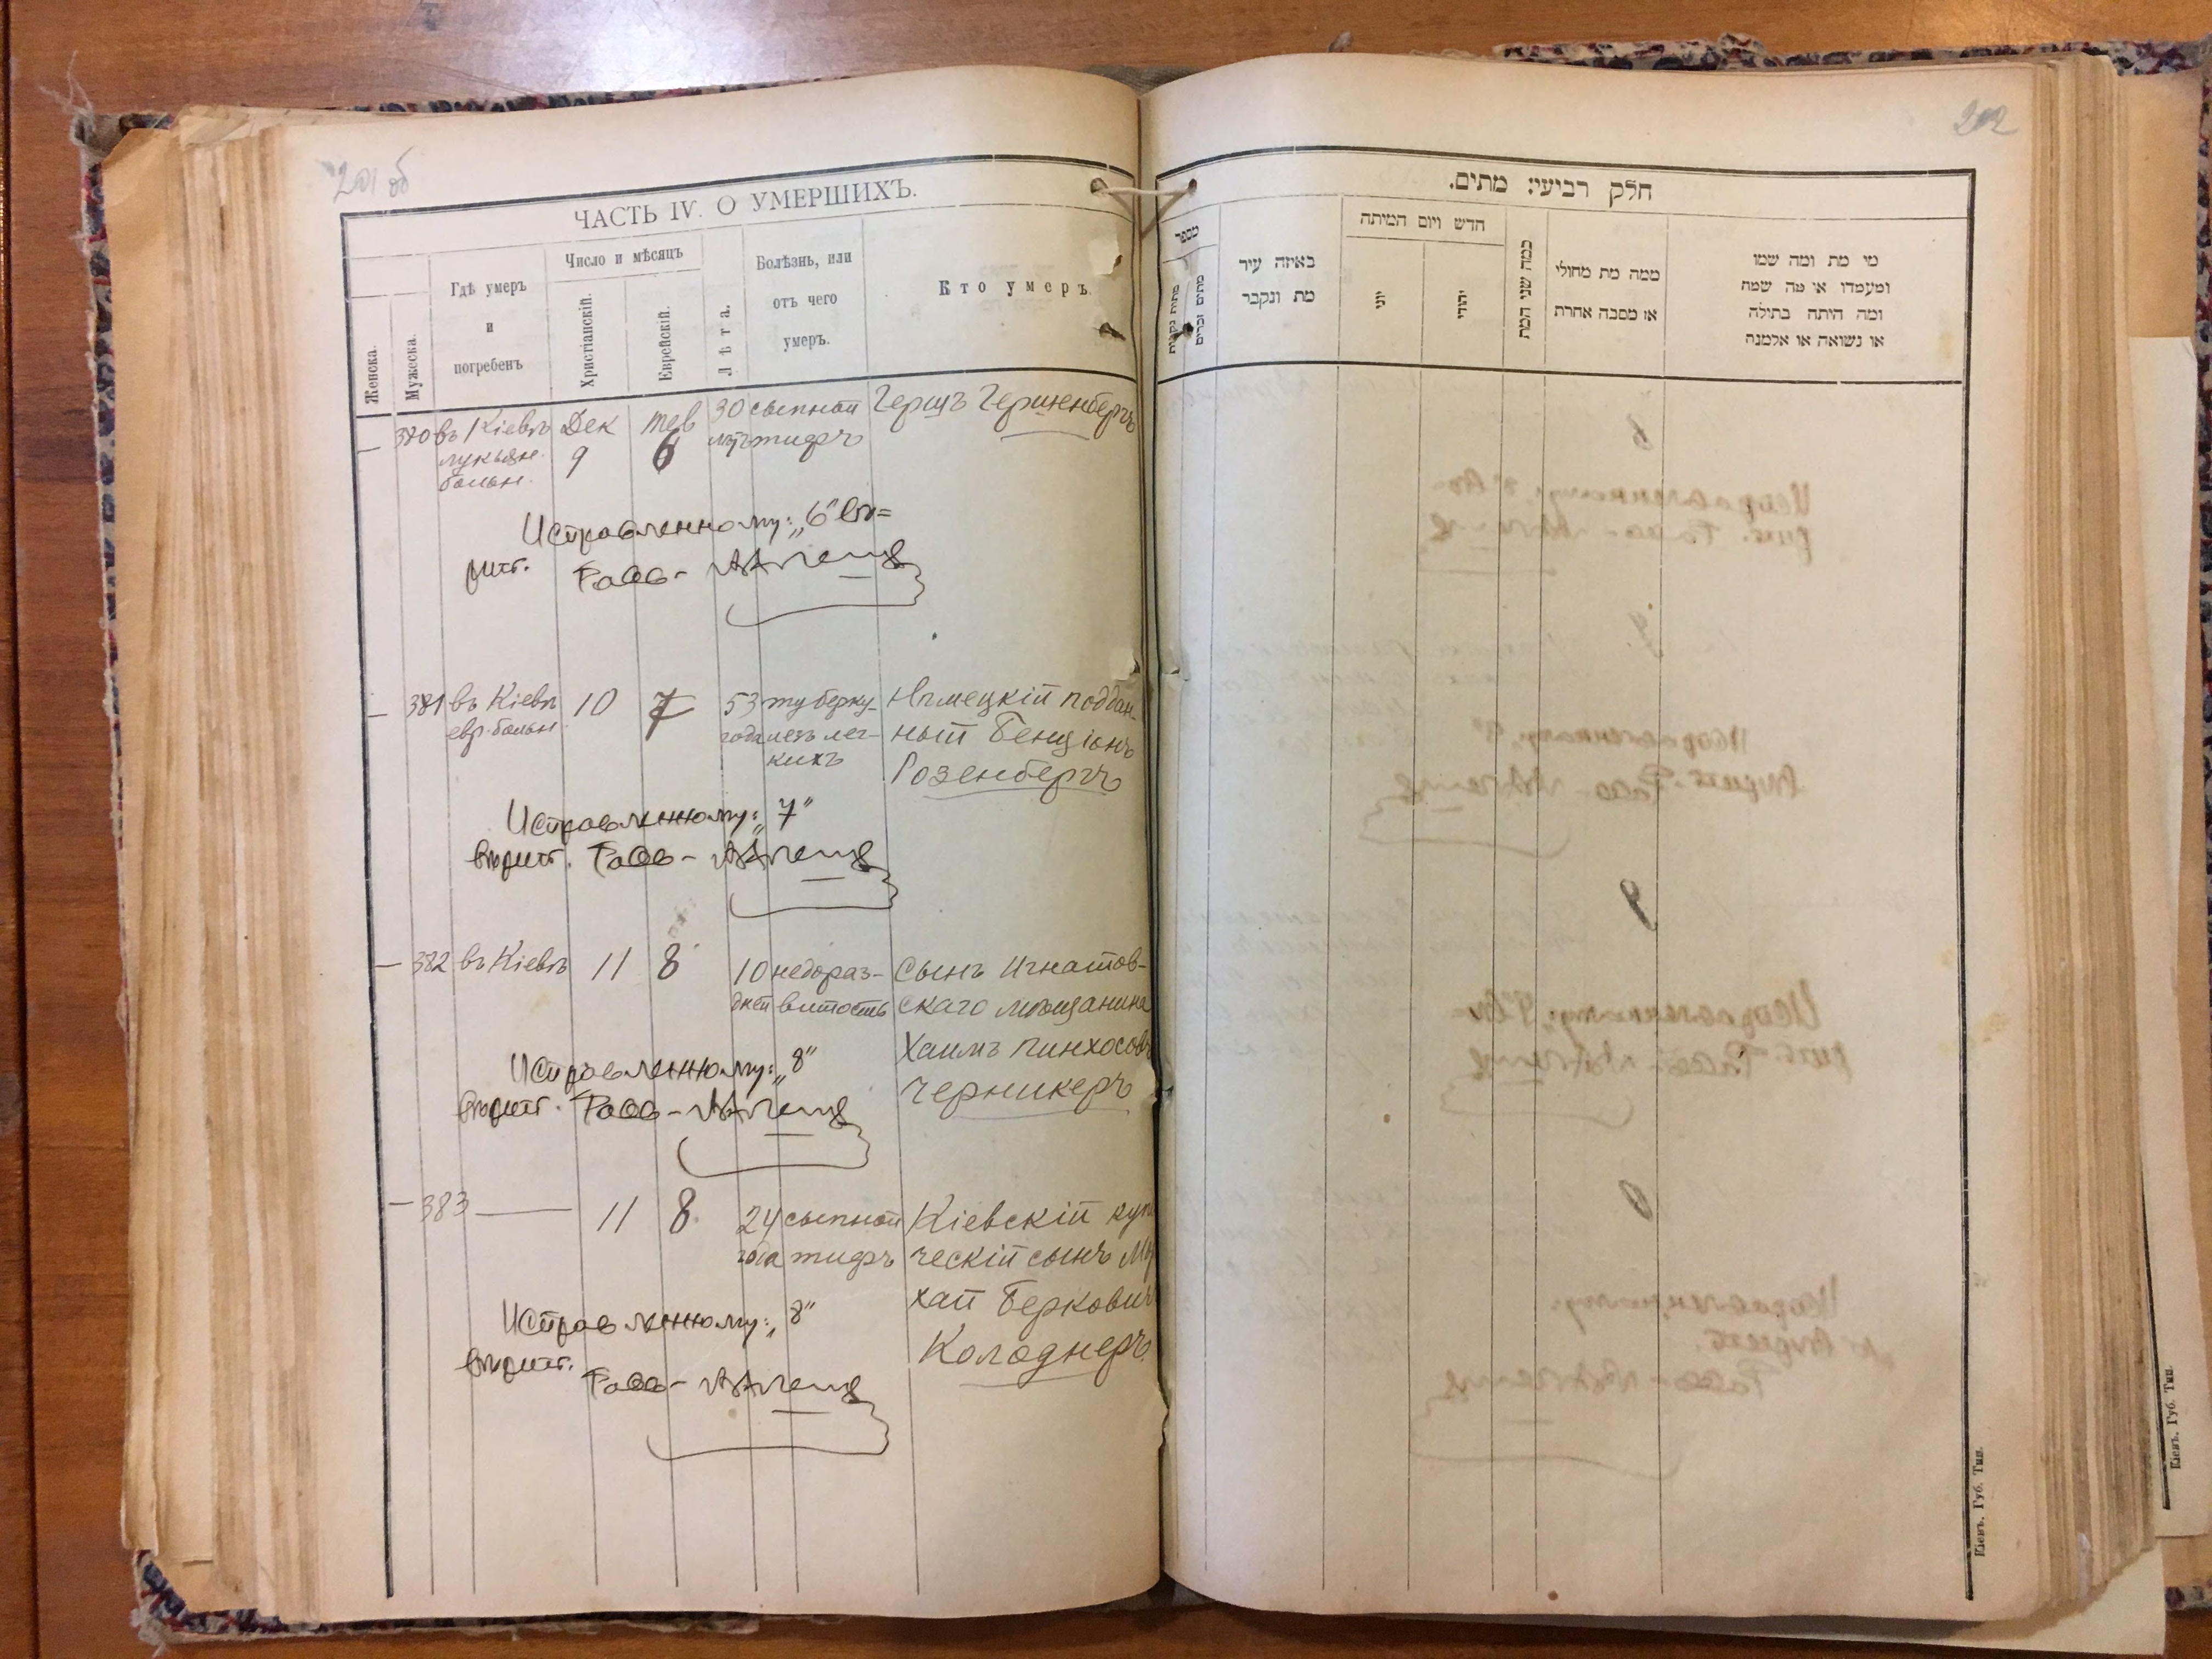 201 об
ЧАСТЬ IV. О УМЕРШИХЪ.
Женска.
Мужеска.
Гдѣ умеръ
и
погребенъ
Число и мѣсяцъ
Христіанскій.
Еврейскій.
Лѣта.
Болѣзнь, или
отъ чего
умеръ.
Кто умеръ.
— 380 въ Кіевѣ Дек Тев 30 сыпной Гершъ Гершенбергъ
лукьян. 9 6 лѣтъ тифъ
больн.
Исправленному: „6" вѣ=
рить.
— 381 въ Кіевѣ 10 7 53 туберку- Нѣмецкій поддан-
евр. больн. года лезъ лег- ный Бенціонъ
кихъ Розенбергъ
Исправленному: „7"
вѣрить.
— 382 въ Кіевѣ 11 8 10 недораз- Сынъ Игнатов-
дней витость скаго мѣщанина
Хаимъ Пинхосовъ
Черникеръ
Исправленному: „8"
вѣрить.
— 383 — 11 8 24 сыпной Кіевскій
года тифъ ческій сынъ
Колоднеръ
Исправленному: „8"
вѣрить.
202
חלק רביעי: מתים.
מספר
מתות נקבות
מתים זכרים
באיזה עיר
מת ונקבר
חדש ויום המיתה
יוני
יהודי
כמה שני המת
ממה מת מחולי
או מסבה אחרת
מי מת ומה שמו
ומעמדו או מה שמה
ומה היתה בתולה
או נשואה או אלמנה
Кіевъ. Губ. Тип.
Кіевъ. Губ. Тип.